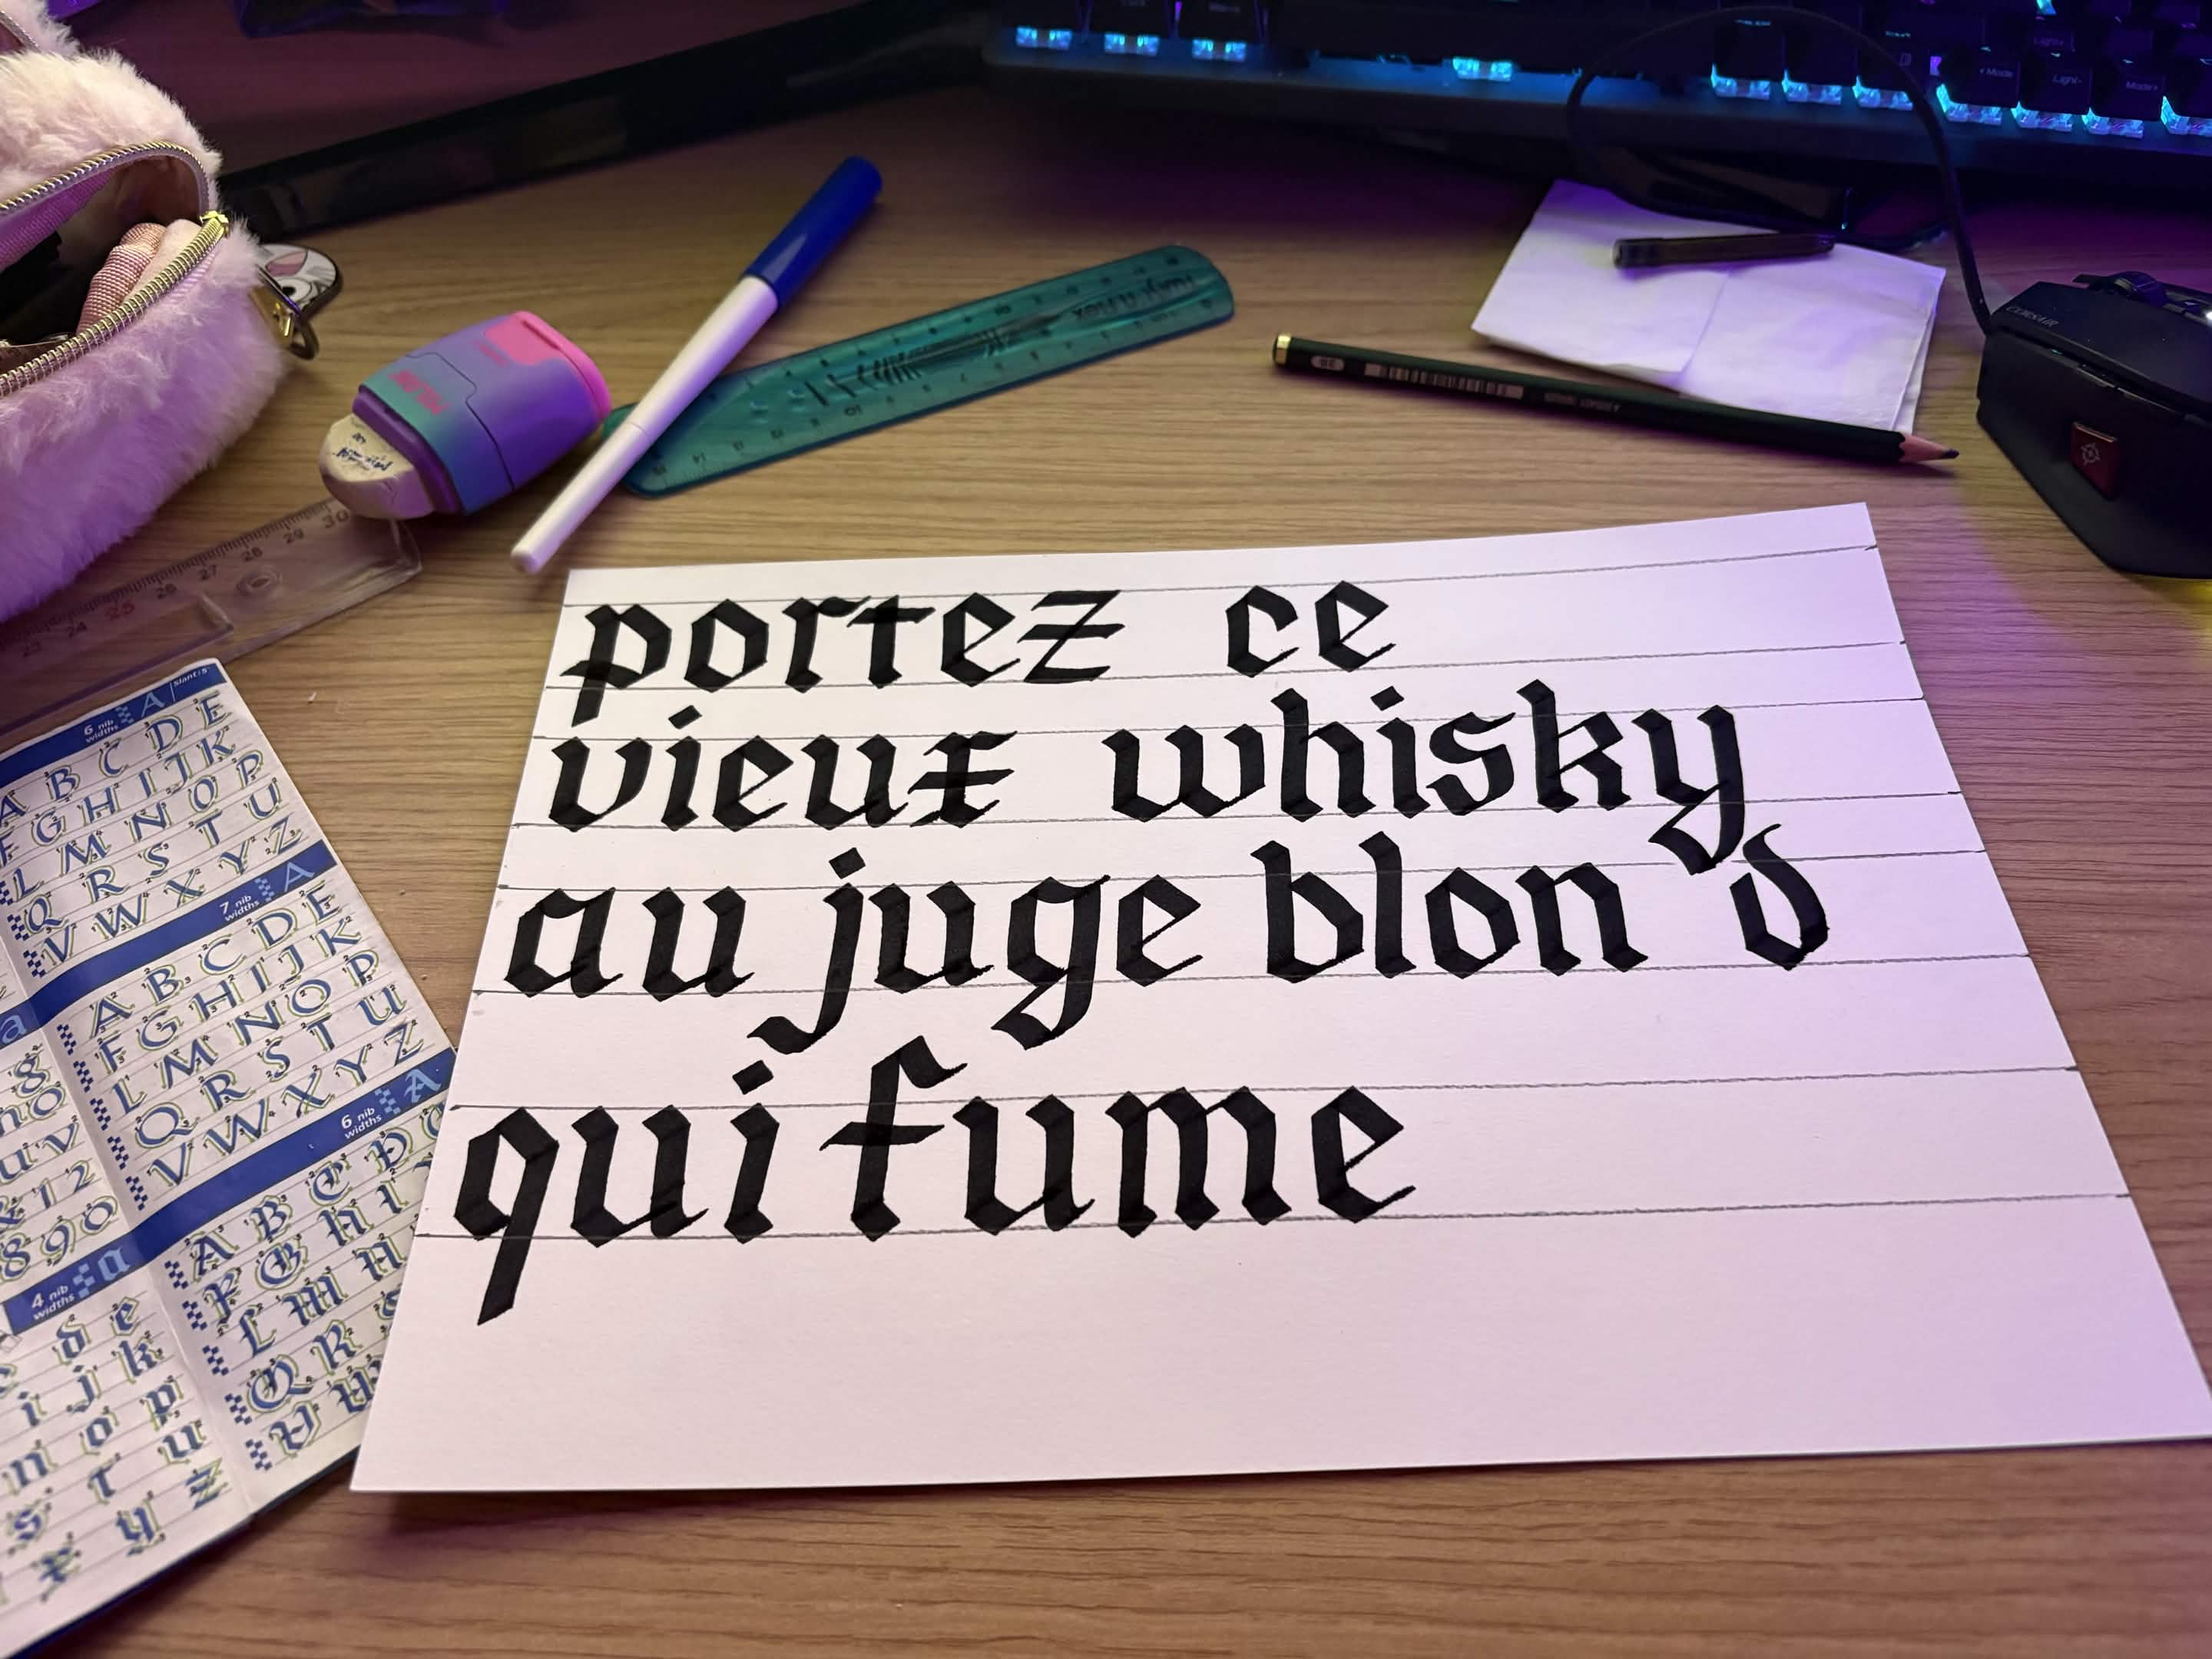 portez ce
vieux whisky
au juge blond
qui fume
6 nib widths A Slant: 5
A B C D E
F G H I J K
L M N O P
Q R S T U
V W X Y Z
7 nib widths A
A B C D E
F G H I J K
L M N O P
Q R S T U
V W X Y Z
6 nib widths A
A B C D
F G H I
L M N
Q R S
V W
a
g
n o
u v
& 1 2
8 9 0
4 nib widths a
d e
i j k
n o p
s t u
x y z
23 24 25 26 27 28 29 30
MILAN
CORSAIR
Mode
Light+
Light-
Mode+